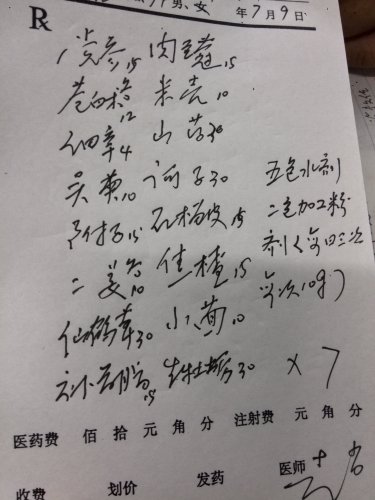 男、女 年7月9日
R
党参15 肉苁蓉15
苍白术各12 米壳10
细辛4 山药30
吴萸10 诃子30 五色水剂
附子15 石榴皮15 二色加工粉
二姜各10 焦楂15 剂(每日三次
仙鹤草30 小茴10 每次10g)
补骨脂15 生牡蛎30 ×7
医药费 佰 拾 元 角 分 注射费 元 角 分
收费 划价 发药 医师